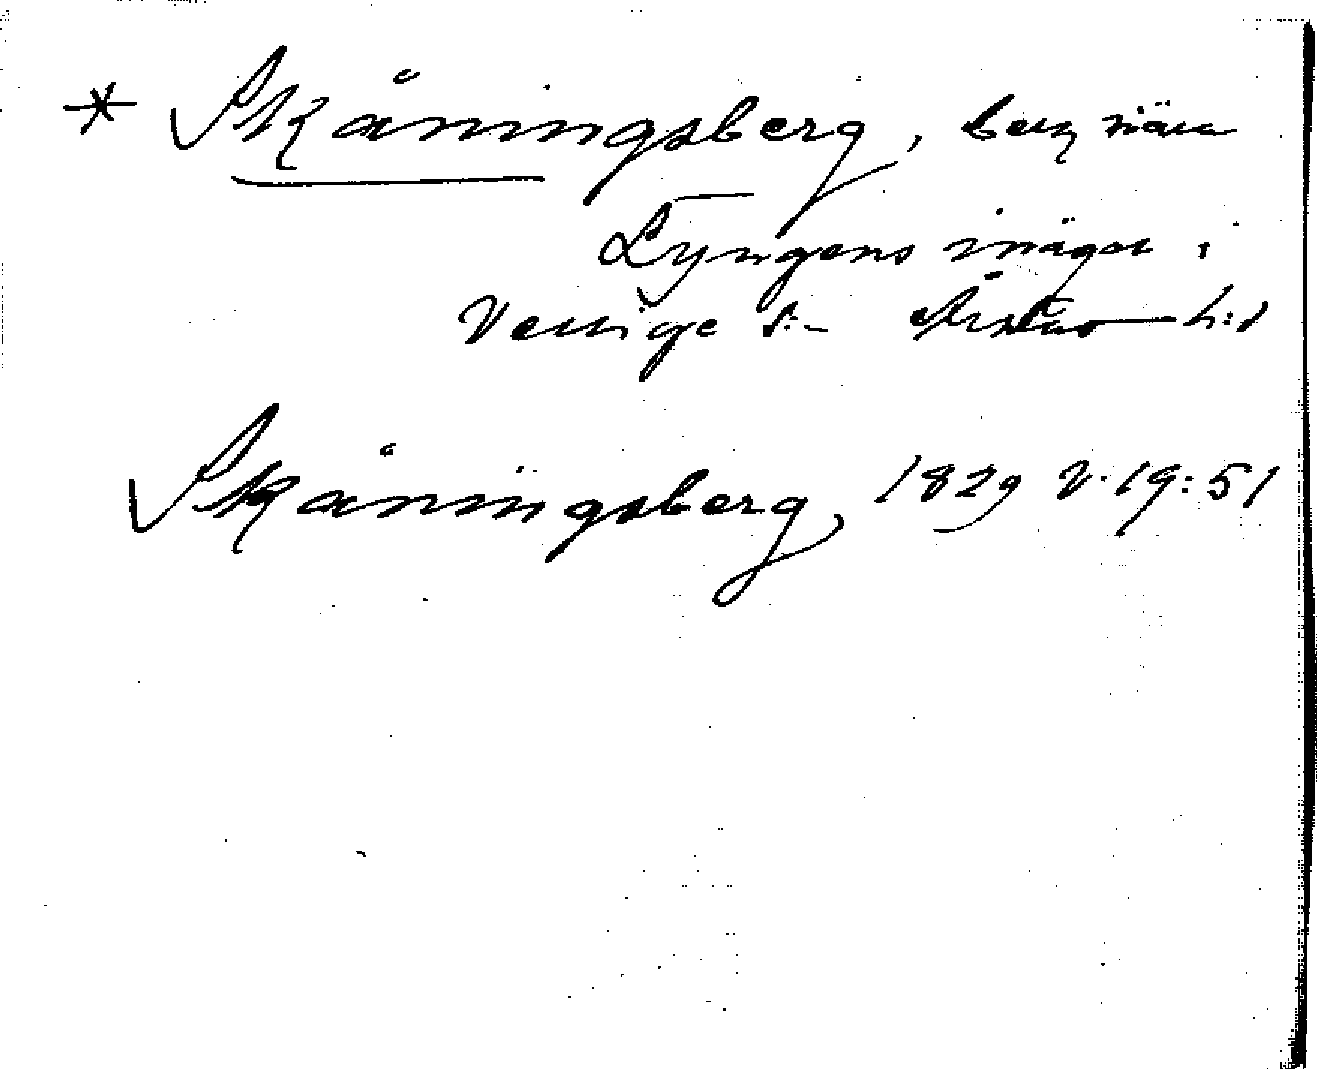 * Skåningsberg, berg nära
Lyngens inägor i
Vessige s:n Årstad h:d
Skåningsberg, 1829 V. 19:51